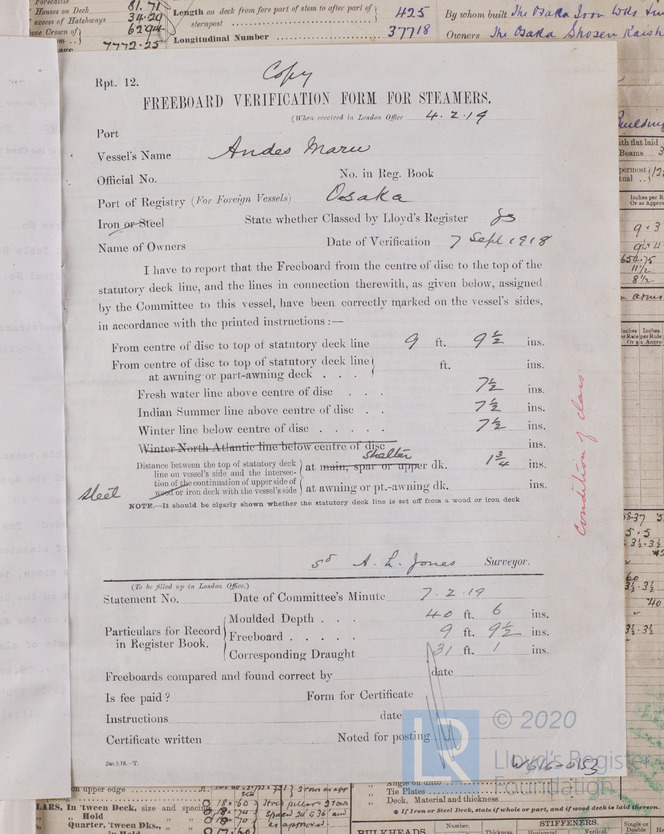 81.71
Houses on Deck
34.29
excess of Hatchways
6294
7772.25
Length on deck from fore part of stem to after part of sternpost 425
Longitudinal Number 37718
By whom built The Osaka Iron Wks
Owners The Osaka Shosen Kaisha
Copy
Rpt. 12.
FREEBOARD VERIFICATION FORM FOR STEAMERS.
(When received in London Office 4.2.19
Port
Vessel's Name Andes Maru
Official No. No. in Reg. Book
Port of Registry (For Foreign Vessels) Osaka
Iron or Steel State whether Classed by Lloyd's Register
Name of Owners Date of Verification 7 Sept 1918
I have to report that the Freeboard from the centre of disc to the top of the
statutory deck line, and the lines in connection therewith, as given below, assigned
by the Committee to this vessel, have been correctly marked on the vessel's sides,
in accordance with the printed instructions :—
From centre of disc to top of statutory deck line 9 ft. 9½ ins.
From centre of disc to top of statutory deck line
at awning or part-awning deck . . . ft. ins.
Fresh water line above centre of disc . . . 7½ ins.
Indian Summer line above centre of disc . . 7½ ins.
Winter line below centre of disc . . . . . 7½ ins.
Winter North Atlantic line below centre of disc ins.
Shelter
Distance between the top of statutory deck
line on vessel's side and the intersec-
tion of the continuation of upper side of
wood or iron deck with the vessel's side
at main, spar or upper dk. 1¾ ins.
steel
at awning or pt.-awning dk. ins.
NOTE.—It should be clearly shown whether the statutory deck line is set off from a wood or iron deck
Condition of class.
A. L. Jones Surveyor.
(To be filled up in London Office.)
Statement No. Date of Committee's Minute 7.2.19
Particulars for Record
in Register Book.
Moulded Depth . . . 40 ft. 6 ins.
Freeboard . . . . . 9 ft. 9½ ins.
Corresponding Draught 31 ft. 1 ins.
Freeboards compared and found correct by date
Is fee paid? Form for Certificate
Instructions date
Certificate written Noted for posting
2m.3.18.—T.
LR
© 2020
Lloyd's Register
Foundation
Tie Plates
Deck. Material and thickness
If Iron or Steel, state if whole or part, and if wood deck is laid thereon.
LARS, In 'tween Deck, size and spacing
" Hold
Quarter, 'tween Dks.,
BULKHEADS
Number.
Thickness.
STIFFENERS.